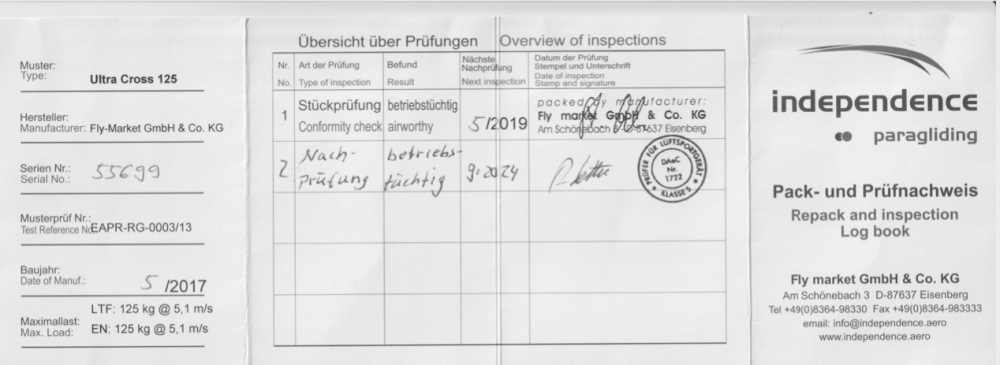 Muster:
Type: Ultra Cross 125
Hersteller:
Manufacturer: Fly-Market GmbH & Co. KG
Serien Nr.:
Serial No.: 55699
Musterprüf Nr.:
Test Reference No EAPR-RG-0003/13
Baujahr:
Date of Manuf.: 5 /2017
LTF: 125 kg @ 5,1 m/s
Maximallast:
Max. Load: EN: 125 kg @ 5,1 m/s
Übersicht über Prüfungen Overview of inspections
Nr. Art der Prüfung Befund Nächste Nachprüfung Datum der Prüfung
Stempel und Unterschrift
No. Type of inspection Result Next inspection Date of inspection
Stamp and signature
1 Stückprüfung betriebstüchtig packed by manufacturer:
Conformity check airworthy 5/2019 Fly market GmbH & Co. KG
Am Schönebach D-87637 Eisenberg
2 Nach- betriebs-
prüfung tüchtig 9.2024
PRÜFER FÜR LUFTSPORTGERÄT
DAeC
Nr.
1722
KLASSE S
independence
paragliding
Pack- und Prüfnachweis
Repack and inspection
Log book
Fly market GmbH & Co. KG
Am Schönebach 3 D-87637 Eisenberg
Tel +49(0)8364-98330 Fax +49(0)8364-983333
email: info@independence.aero
www.independence.aero